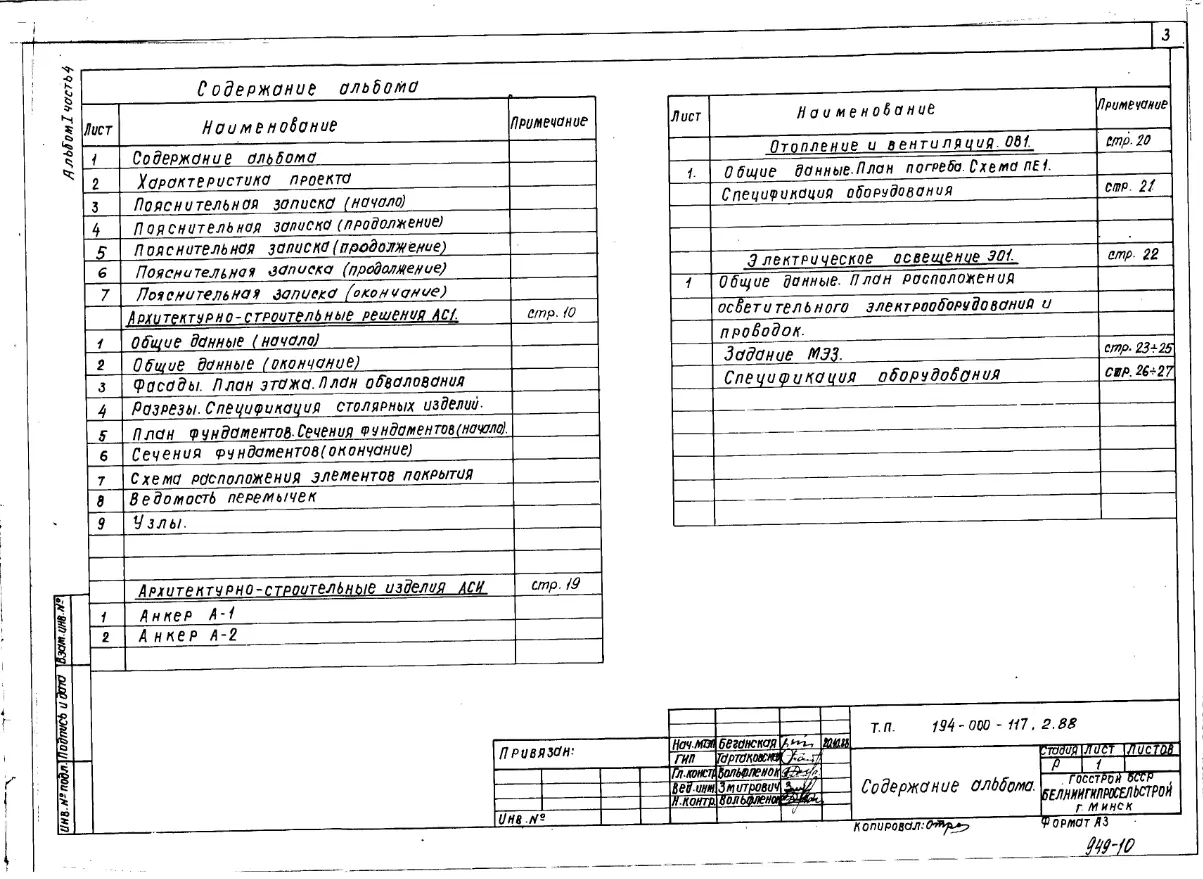 3
Альбом I часть 4
Содержание альбома
Лист Наименование Примечание
1 Содержание альбома
2 Характеристика проекта
3 Пояснительная записка (начало)
4 Пояснительная записка (продолжение)
5 Пояснительная записка (продолжение)
6 Пояснительная записка (продолжение)
7 Пояснительная записка (окончание)
Архитектурно-строительные решения АС1. стр. 10
1 Общие данные (начало)
2 Общие данные (окончание)
3 Фасады. План этажа. План обвалования
4 Разрезы. Спецификация столярных изделий.
5 План фундаментов. Сечения фундаментов (начало).
6 Сечения фундаментов (окончание)
7 Схема расположения элементов покрытия
8 Ведомость перемычек
9 Узлы.
Архитектурно-строительные изделия АСИ стр. 19
1 Анкер А-1
2 Анкер А-2
Лист Наименование Примечание
Отопление и вентиляция. ОВ1. стр. 20
1. Общие данные. План погреба. Схема ПЕ1.
Спецификация оборудования стр. 21
Электрическое освещение ЭО1. стр. 22
1 Общие данные. План расположения
осветительного электрооборудования и
проводок.
Задание МЭЗ. стр. 23÷25
Спецификация оборудования стр. 26÷27
Взам.инв.№
Подпись и дата
Инв.№ подл.
Привязан:
Инв.№
Нач.МТЭП Беганская
ГИП Тартаковский
Гл.констр. Вольфленок
Вед.инж. Змитрович
Н.контр. Вольфленок
Т.П. 194-000-117.2.88
Содержание альбома.
Стадия Лист Листов
Р 1
Госстрой БССР
БЕЛНИИГИПРОСЕЛЬСТРОЙ
г. Минск
Копировал:
Формат А3
949-10